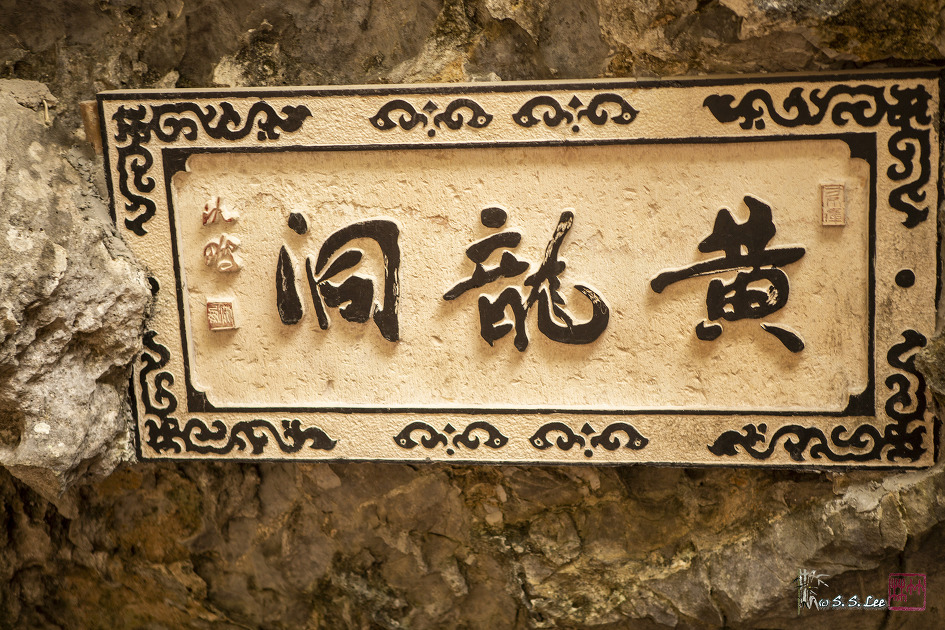 黄龍洞
© S. S. Lee